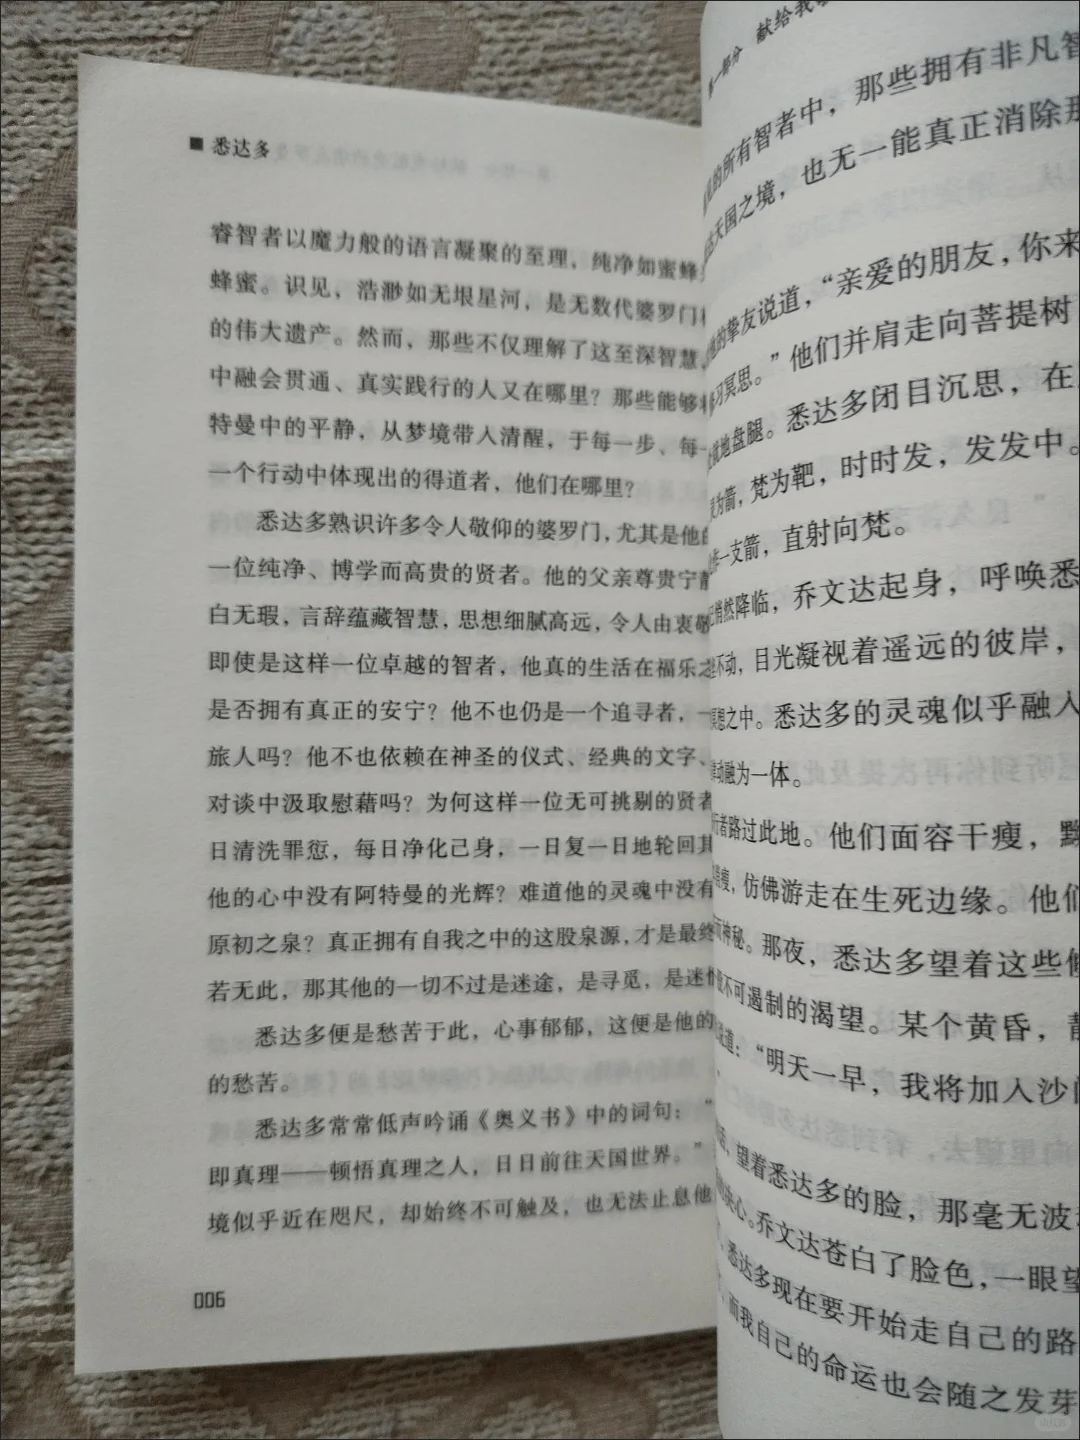 ■ 悉达多
睿智者以魔力般的语言凝聚的至理，纯净如蜜蜂
蜂蜜。识见，浩渺如无垠星河，是无数代婆罗门
的伟大遗产。然而，那些不仅理解了这至深智慧
中融会贯通、真实践行的人又在哪里？那些能够
特曼中的平静，从梦境带入清醒，于每一步、每一
一个行动中体现出的得道者，他们在哪里？
悉达多熟识许多令人敬仰的婆罗门，尤其是他的
一位纯净、博学而高贵的贤者。他的父亲尊贵宁静
白无瑕，言辞蕴藏智慧，思想细腻高远，令人由衷敬
即使是这样一位卓越的智者，他真的生活在福乐之
是否拥有真正的安宁？他不也仍是一个追寻者，一
旅人吗？他不也依赖在神圣的仪式、经典的文字、
对谈中汲取慰藉吗？为何这样一位无可挑剔的贤者
日清洗罪愆，每日净化己身，一日复一日地轮回其
他的心中没有阿特曼的光辉？难道他的灵魂中没有
原初之泉？真正拥有自我之中的这股泉源，才是最终
若无此，那其他的一切不过是迷途，是寻觅，是迷
悉达多便是愁苦于此，心事郁郁，这便是他的
的愁苦。
悉达多常常低声吟诵《奥义书》中的词句：“
即真理——顿悟真理之人，日日前往天国世界。”
境似乎近在咫尺，却始终不可触及，也无法止息他
006
第一部分 献给我
的所有智者中，那些拥有非凡智
达天国之境，也无一能真正消除那
的挚友说道，“亲爱的朋友，你来
习冥思。”他们并肩走向菩提树
就地盘腿。悉达多闭目沉思，在
为箭，梵为靶，时时发，发发中。
一支箭，直射向梵。
悄然降临，乔文达起身，呼唤悉
不动，目光凝视着遥远的彼岸，
冥想之中。悉达多的灵魂似乎融入
动融为一体。
行者路过此地。他们面容干瘦，黝
瘦，仿佛游走在生死边缘。他们
而神秘。那夜，悉达多望着这些修
不可遏制的渴望。某个黄昏，静
道：“明天一早，我将加入沙门
，望着悉达多的脸，那毫无波
决心。乔文达苍白了脸色，一眼望
，悉达多现在要开始走自己的路
，而我自己的命运也会随之发芽